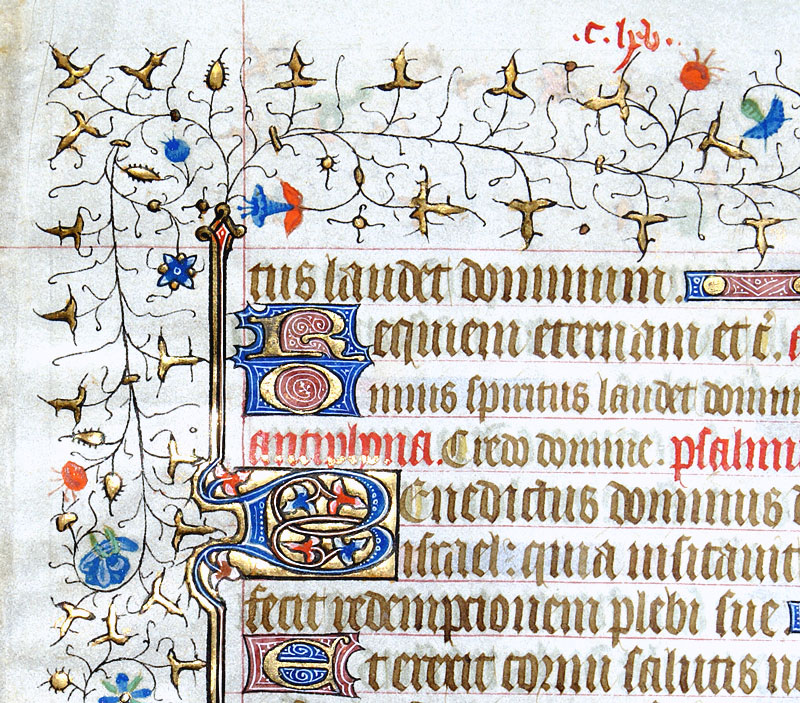 .c. lxv.
tus laudet dominum.
Requiem eternam et c̄.
Omnis spiritus laudet domin
antiphona. Credo domine. psalm
Benedictus dominus d
israel: quia visitavit
fecit redemptionem plebi sue
Et erexit cornu salutis n